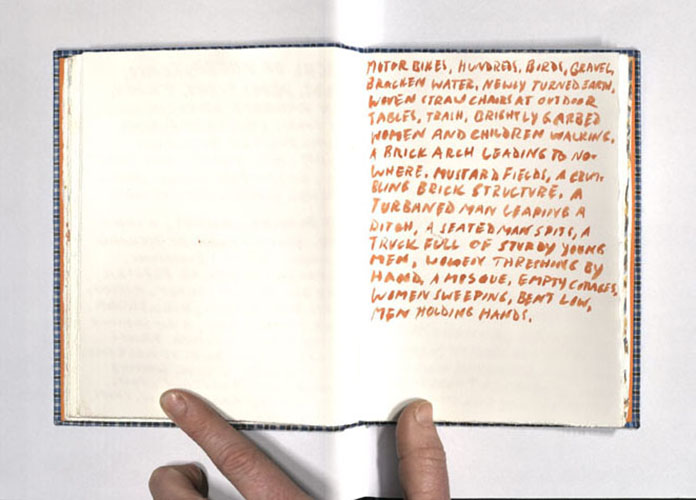 MOTOR BIKES, HUNDREDS, BIRDS, GRAVEL,
BRACKEN WATER, NEWLY TURNED EARTH,
WOVEN STRAW CHAIRS AT OUTDOOR
TABLES, TRASH, BRIGHTLY GARBED
WOMEN AND CHILDREN WALKING,
A BRICK ARCH LEADING TO NO-
WHERE. MUSTARD FIELDS, A CRUM-
BLING BRICK STRUCTURE. A
TURBANED MAN LEAPING A
DITCH, A SEATED MAN SPITS, A
TRUCK FULL OF STURDY YOUNG
MEN, WOMEN THRESHING BY
HAND, A MOSQUE, EMPTY COTTAGES,
WOMEN SWEEPING, BENT LOW,
MEN HOLDING HANDS.